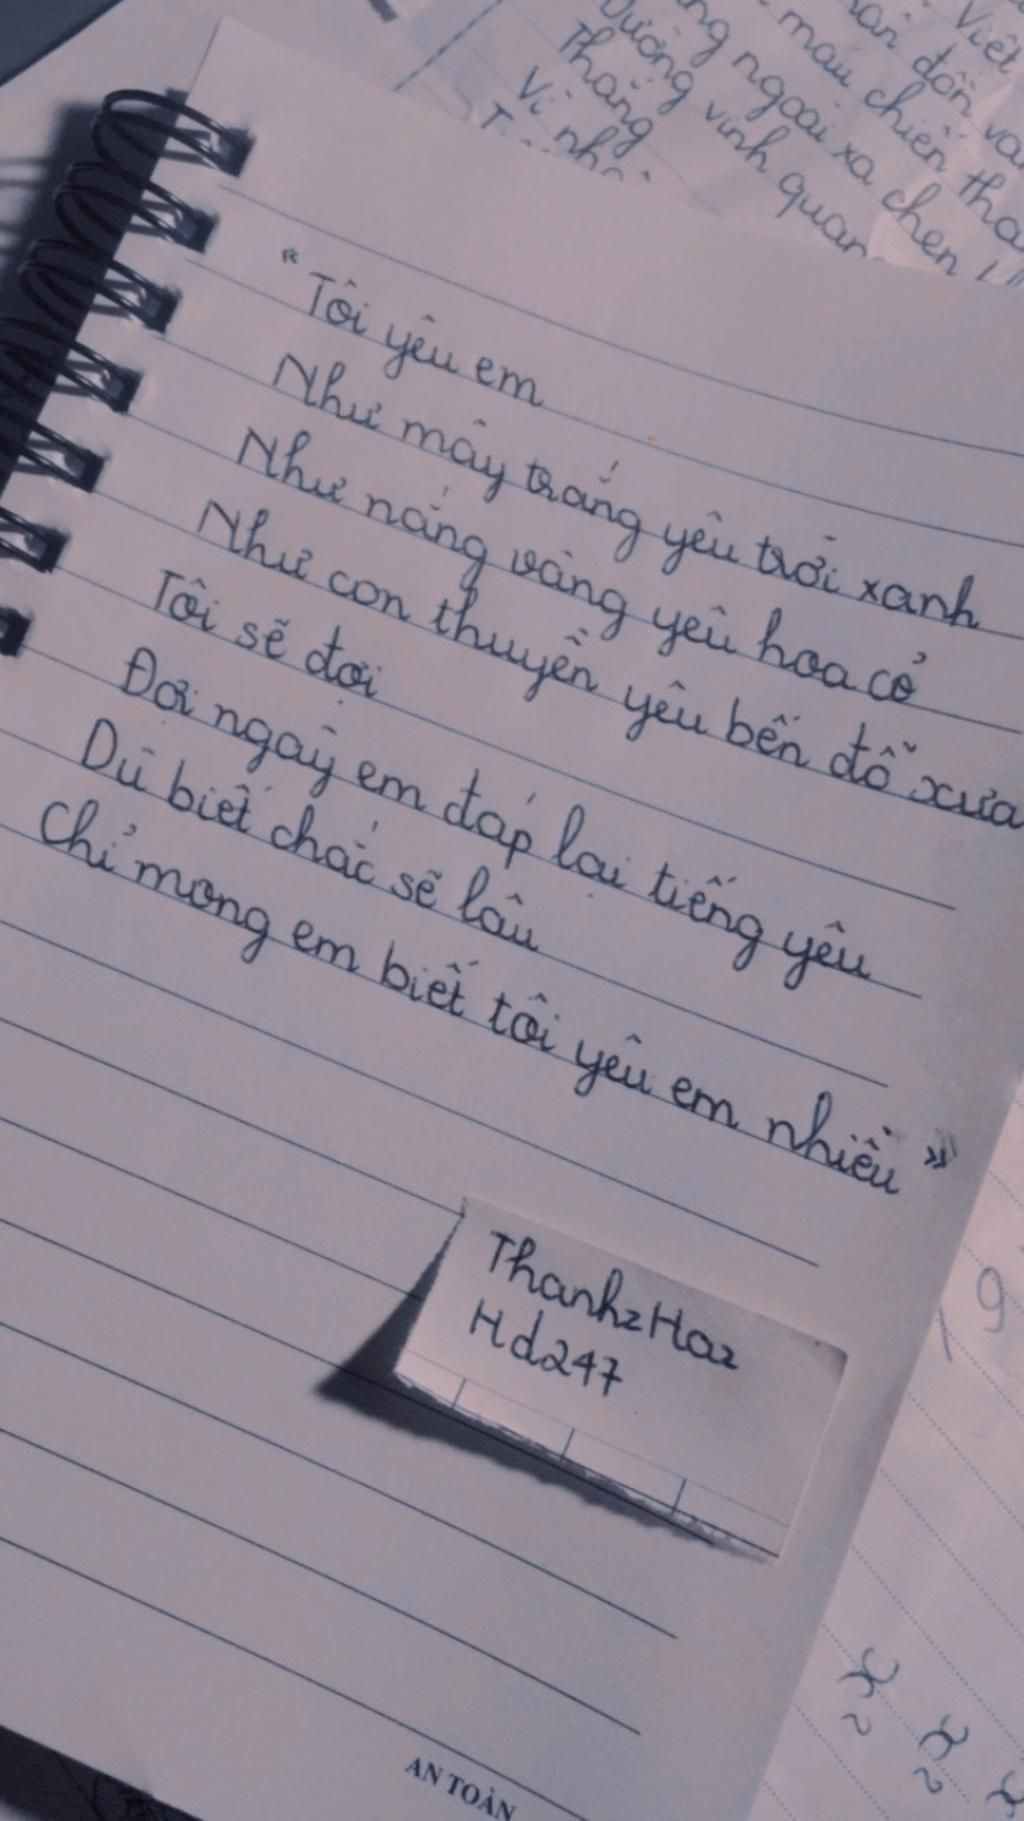 Việt
đoàn
máu chiến
ngoài xa chen
Đường vinh quang
Thắng
Vì
" Tôi yêu em
Như mây trắng yêu trời xanh
Như nắng vàng yêu hoa cỏ
Như con thuyền yêu bến đỗ xưa
Tôi sẽ đợi
Đợi ngày em đáp lại tiếng yêu
Dù biết chắc sẽ lâu
Chỉ mong em biết tôi yêu em nhiều "
ThanhzHaz
Hd247
9
AN TOÀN